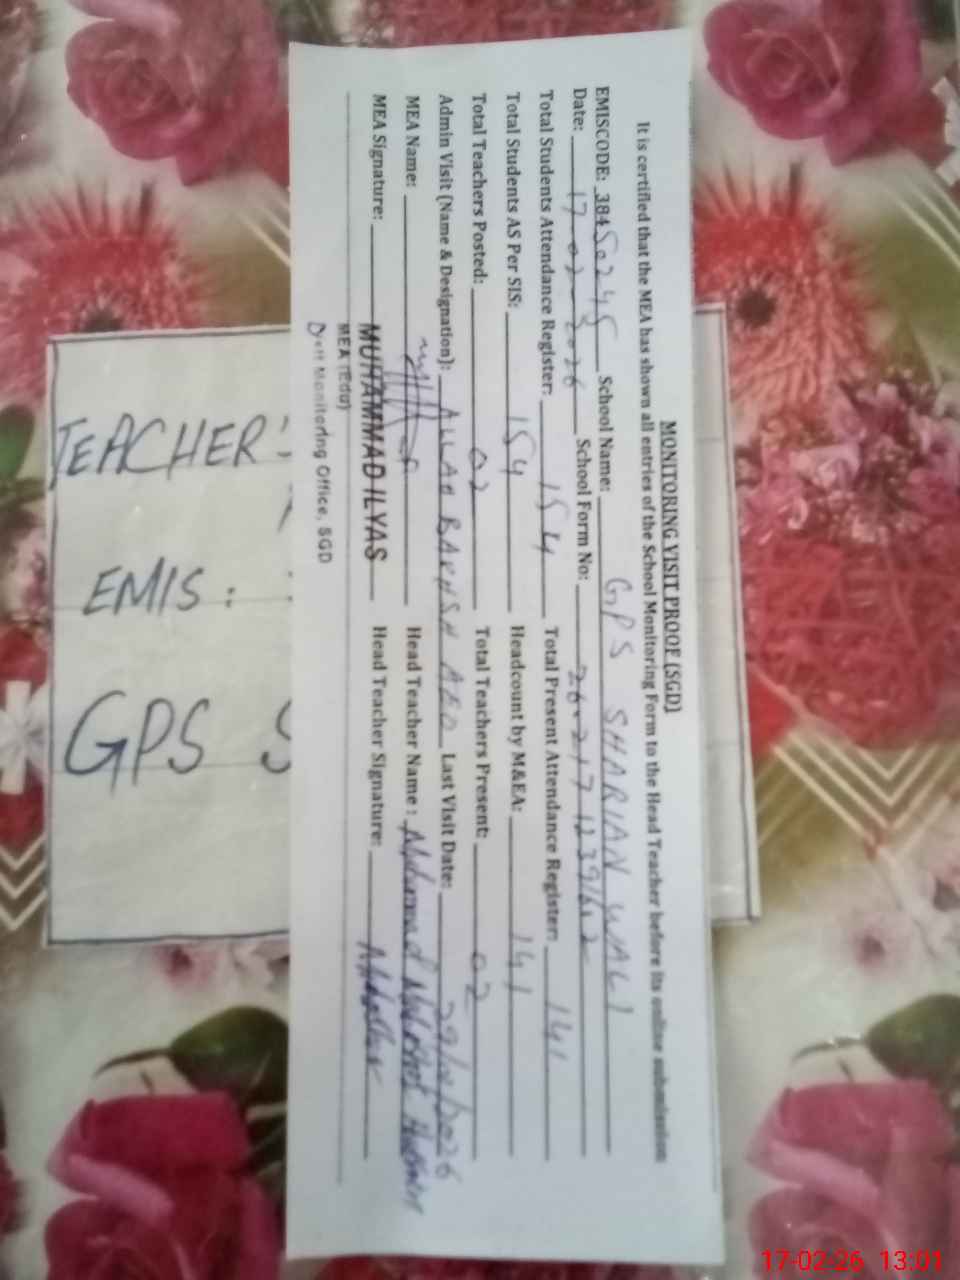 MONITORING VISIT PROOF (SGD)
It is certified that the MEA has shown all entries of the School Monitoring Form to the Head Teacher before its online submission
EMISCODE: 38450245 School Name: GPS SHARIAN WALI
Date: 17-02-2026 School Form No: 26-2171239162
Total Students Attendance Register: 154 Total Present Attendance Register: 141
Total Students AS Per SIS: 154 Headcount by M&EA: 141
Total Teachers Posted: 02 Total Teachers Present: 02
Admin Visit (Name & Designation): ALLAH BAKHSH AEO Last Visit Date:
MEA Name: Head Teacher Name: Muhammad
MEA Signature: MUHAMMAD ILYAS Head Teacher Signature:
MEA (Edu)
Distt Monitoring Office, SGD
TEACHER:
EMIS:
GPS S
17-02-26 13:01